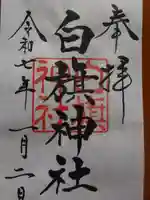 奉拝
白旗神社
令和七年一月二日